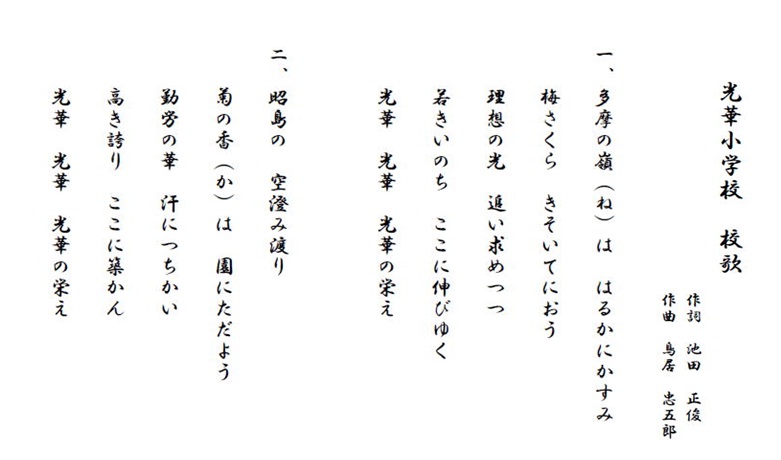 光華小学校　校歌
作詞　池田　正俊
作曲　鳥居　忠五郎
一、多摩の嶺（ね）は　はるかにかすみ
梅さくら　きそいてにおう
理想の光　追い求めつつ
若きいのち　ここに伸びゆく
光華　光華　光華の栄え
二、昭島の　空澄み渡り
菊の香（か）は　園にただよう
勤労の華　汗につちかい
高き誇り　ここに築かん
光華　光華　光華の栄え